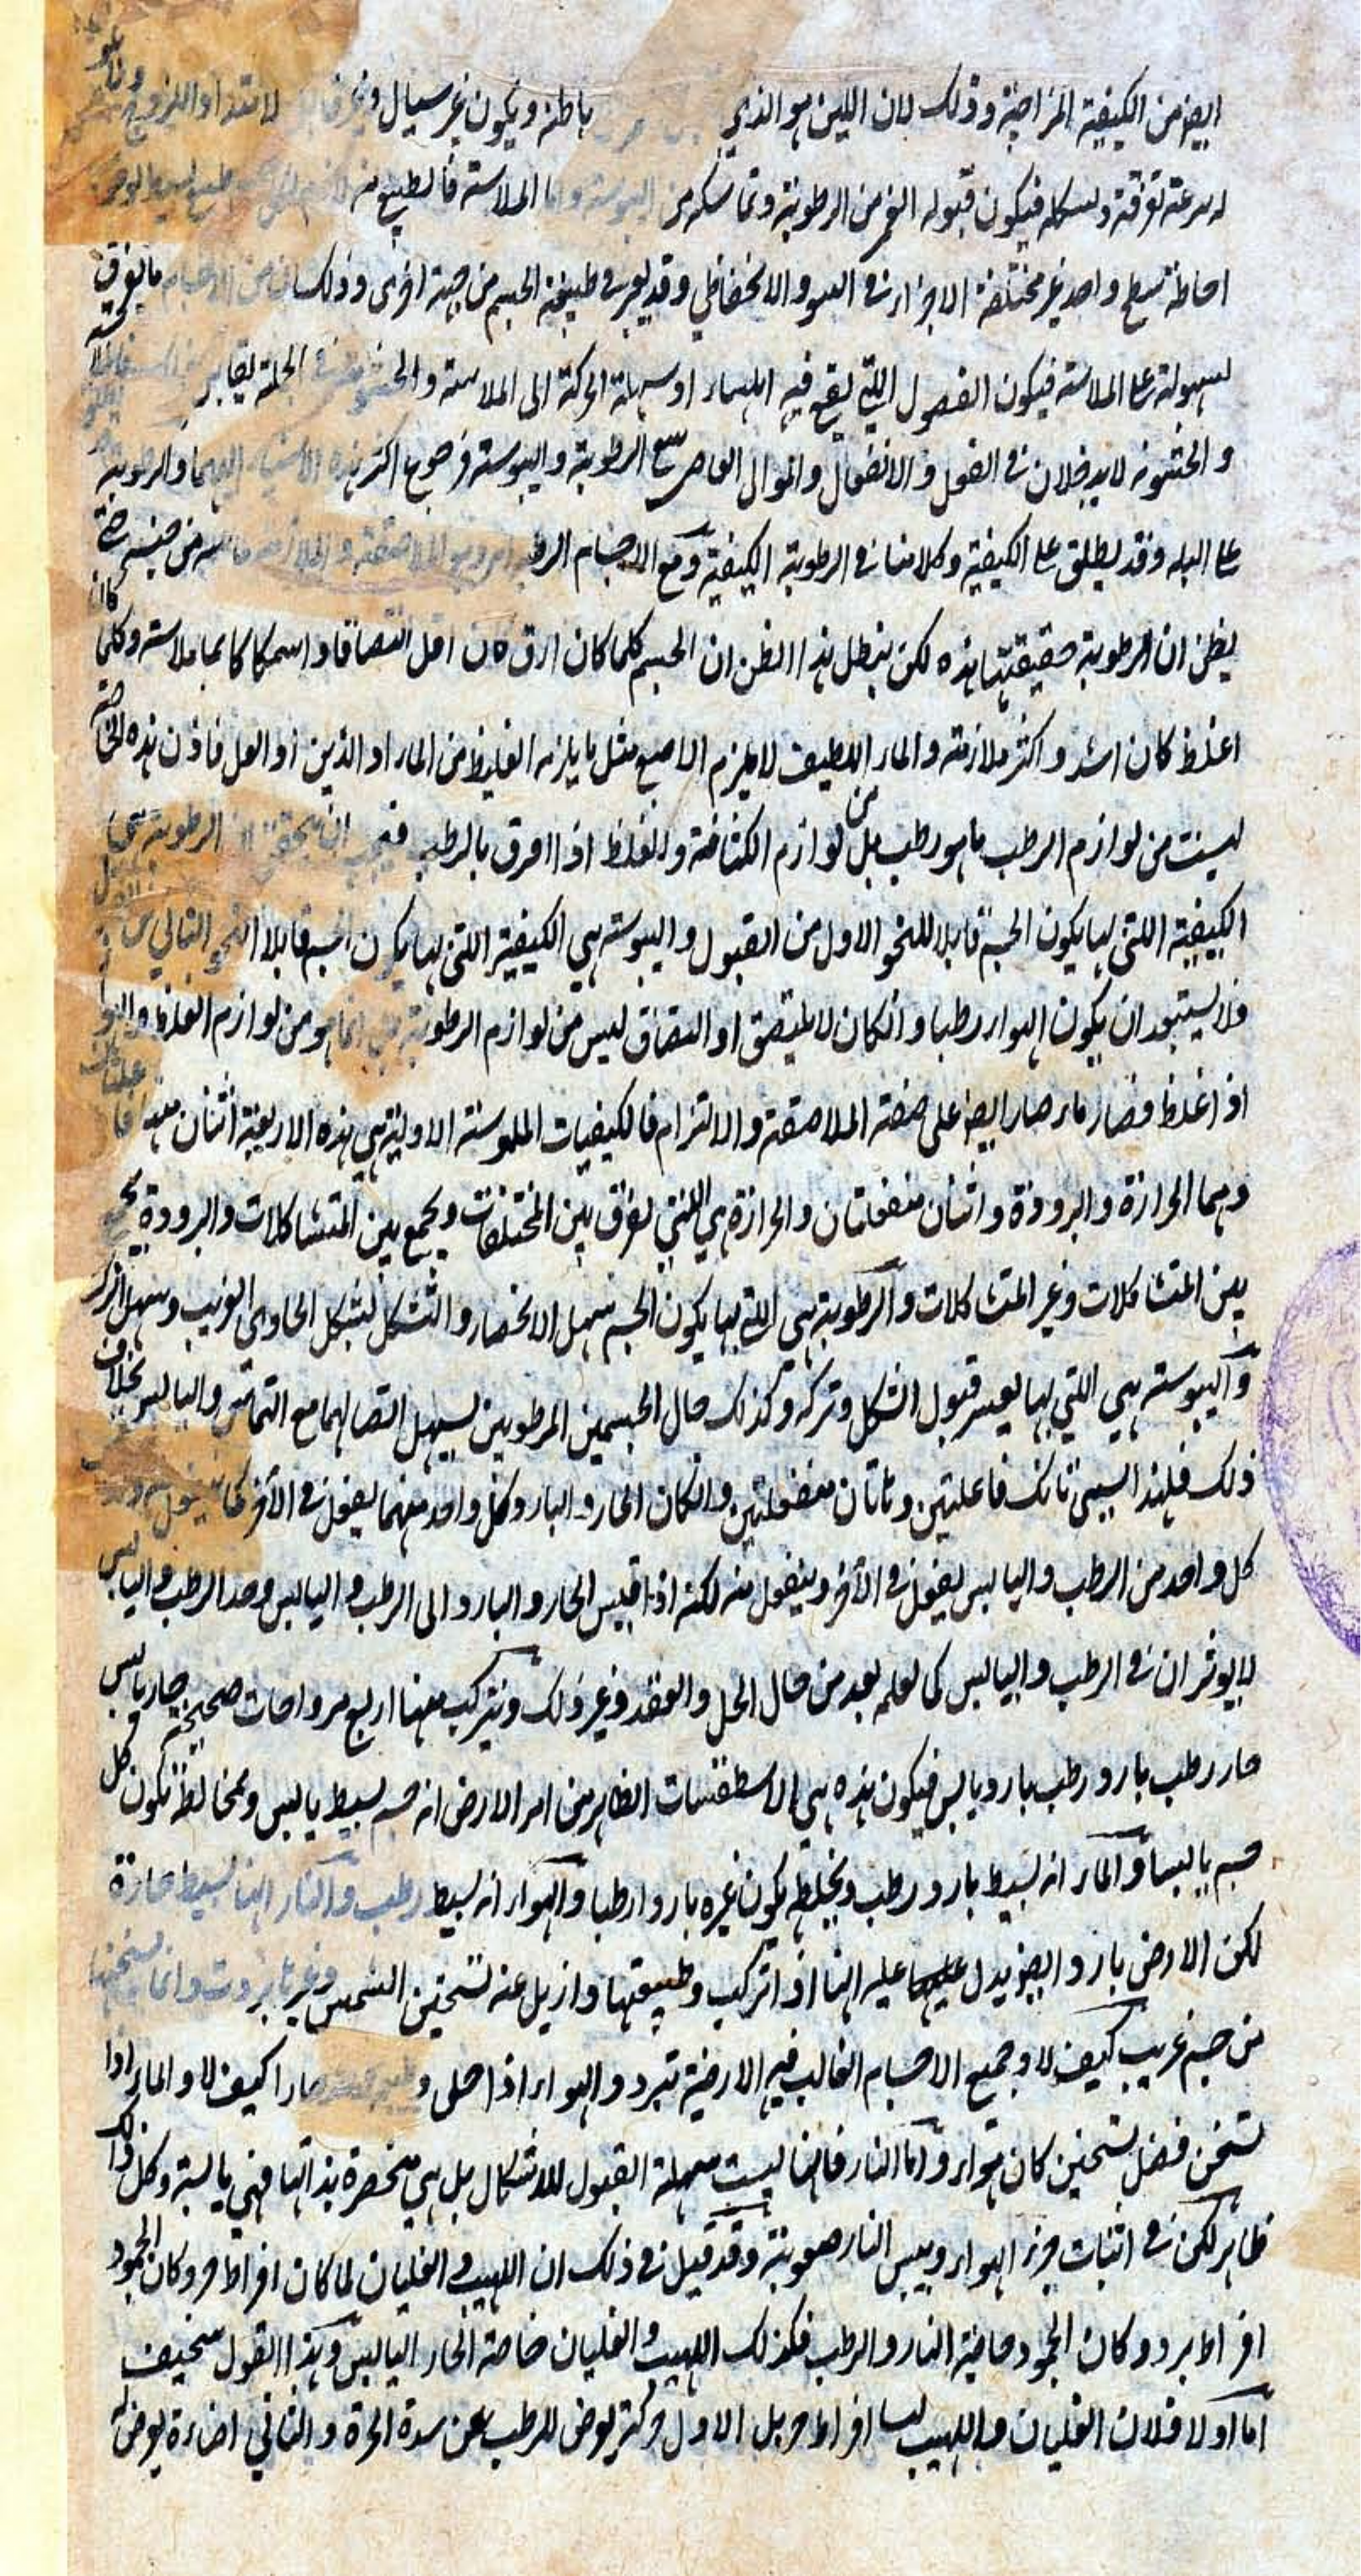 ايضا من الكيفية المزاجية وذلك لان اللين هو الذي باطنه ويكون غير سيال و
له سرعة تفرقه وتشكله فيكون قبوله الغمز من الرطوبة وتماسكه من اليبوسة واما الملاسة فالطبيع منه
احاطة سطح واحد غير مختلفة الاجزاء في النبو والانخفاض وقد يعرض في طبيعة الجسم من جهة اخرى وذلك ان من الاجسام ما يفرق
لسهولة على الملاسة فيكون الفصول التي يقع فيه املساء او سهلة الحركة الى الملاسة والخشونة في الجملة
والخشونة لا يدخلان في الفعل والانفعال وانما الى الرطوبة واليبوسة رجوع اكثر هذه الاشياء اليهما والرطوبة
على البله وقد يطلق على الكيفية وكلامنا في الرطوبة الكيفية ومع الاجسام الرطبة الملاصقة والملازمة من جنسه حتى
يظن ان الرطوبة حقيقتها هذه لكن يبطل هذا الظن ان الجسم كلما كان ارق كان اقل التصاقا واستمساكا بما ملاسته وكلما كان
اغلظ كان اشد واكثر ملازمة والماء اللطيف لا يلزم الاصبع مثل ما يلزمه الغليظ من الماء او الدهن او العسل فاذن هذه الخاصة
ليست من لوازم الرطب ما هو رطب بل من لوازم الكثافة والغلظ اذا اقترن بالرطب فيجب ان يتحقق ان الرطوبة هي
الكيفية اللتي بها يكون الجسم قابلا للنحو الاول من القبول واليبوسة هي الكيفية اللتي بها يكون الجسم قابلا النحو الثاني من
ولا يستبعد ان يكون الهواء رطبا وانكان لا يلتصق اذ التصاق ليس من لوازم الرطوبة بل انما هو من لوازم الغلظ والهواء
اذ اغلظ فصار ماء صار ايضا على صفة الملاصقة والالتزام فالكيفيات الملموسة الاولية هي هذه الاربعة اثنان منها
وهما الحرارة والبرودة واثنان منفعلتان والحرارة هي اللتي تفرق بين المختلفات ويجمع بين المتشاكلات والبرودة يجمع
بين المتشاكلات وغير المتشاكلات والرطوبة هي التي بها يكون الجسم سهل الانحصار والتشكل لشكل الحاوى الغريب وسهل الترك
واليبوسة هي التي بها يعسر قبول الشكل وتركه وكذلك حال الجسمين المرطوبين يسهل اتصالهما مع التماس واليابس بخلاف
ذلك فلهذا السبب تانك فاعلتين وتاتان منفعلتين وانكان الحار والبارد وكل واحد منهما يفعل في الآخر كما ينفعل منه
كل واحد من الرطب واليابس يفعل في الآخر وينفعل منه لكنه اذا قيس الحار والبارد الى الرطب واليابس وحد الرطب واليابس
لا يؤثران في الرطب واليابس كما تعلم بعد من حال الحل والعقد وغير ذلك ويتركب منها اربع مزاوجات صحيحة حار يابس
حار رطب بارد رطب بارد يابس فيكون هذه هي الاسطقسات الظاهر من امر الارض انه جسم بسيط يابس وبمخالطته يكون كل
جسم يابسا والماء انه بسيط بارد رطب ويخلطه يكون غيره باردا رطبا والهواء انه بسيط رطب والنار انها بسيط حارة
لكن الارض بارد ايضا ويدل عليه انها اذا تركت وطبيعتها وازيل عنه تسخين الشمس وغيرها بردت وانما تسخنها
من جسم غريب كيف لا وجميع الاجسام الغالب فيه الارضية تبرد والهواء اذا خلى وطبيعته حارا كيف لا والماء اذا
تسخن فضل تسخين كان هواء واما النار فانها ليست سهلة القبول للاشكال بل هي منحصرة بذاتها فهي يابسة وكل ذلك
ظاهر لكن في اثبات حر الهواء ويبس النار صعوبة وقد قيل في ذلك ان اللهيب والغليان لما كان افراط حر وكان الجمود
افراط برد وكان الجمود خاصية البارد والرطب فكذلك اللهيب والغليان خاصة الحار اليابس وهذا القول سخيف
اما اولا فلان الغليان واللهيب ليسا افراط حر بل الاول حركة تعرض للرطب عن شدة الحرة والثاني اضاءة يعرض